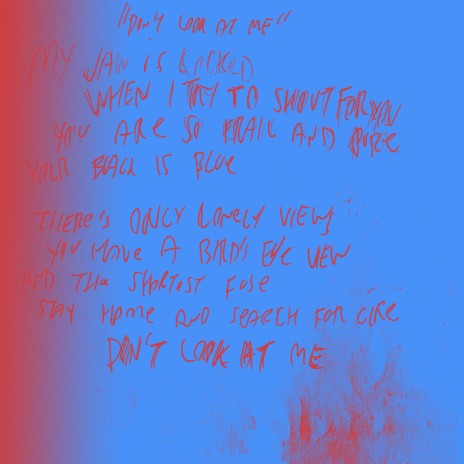 "DON'T LOOK AT ME"
MY JAW IS LOCKED
WHEN I TRY TO SHOUT FOR YOU
YOU ARE SO FRAIL AND PURE
YOUR BLACK IS BLUE
THERE'S ONLY LONELY VIEWS
YOU HAVE A BIRD'S EYE VIEW
AND THE SHORTEST FUSE
STAY HOME AND SEARCH FOR CURE
DON'T LOOK AT ME